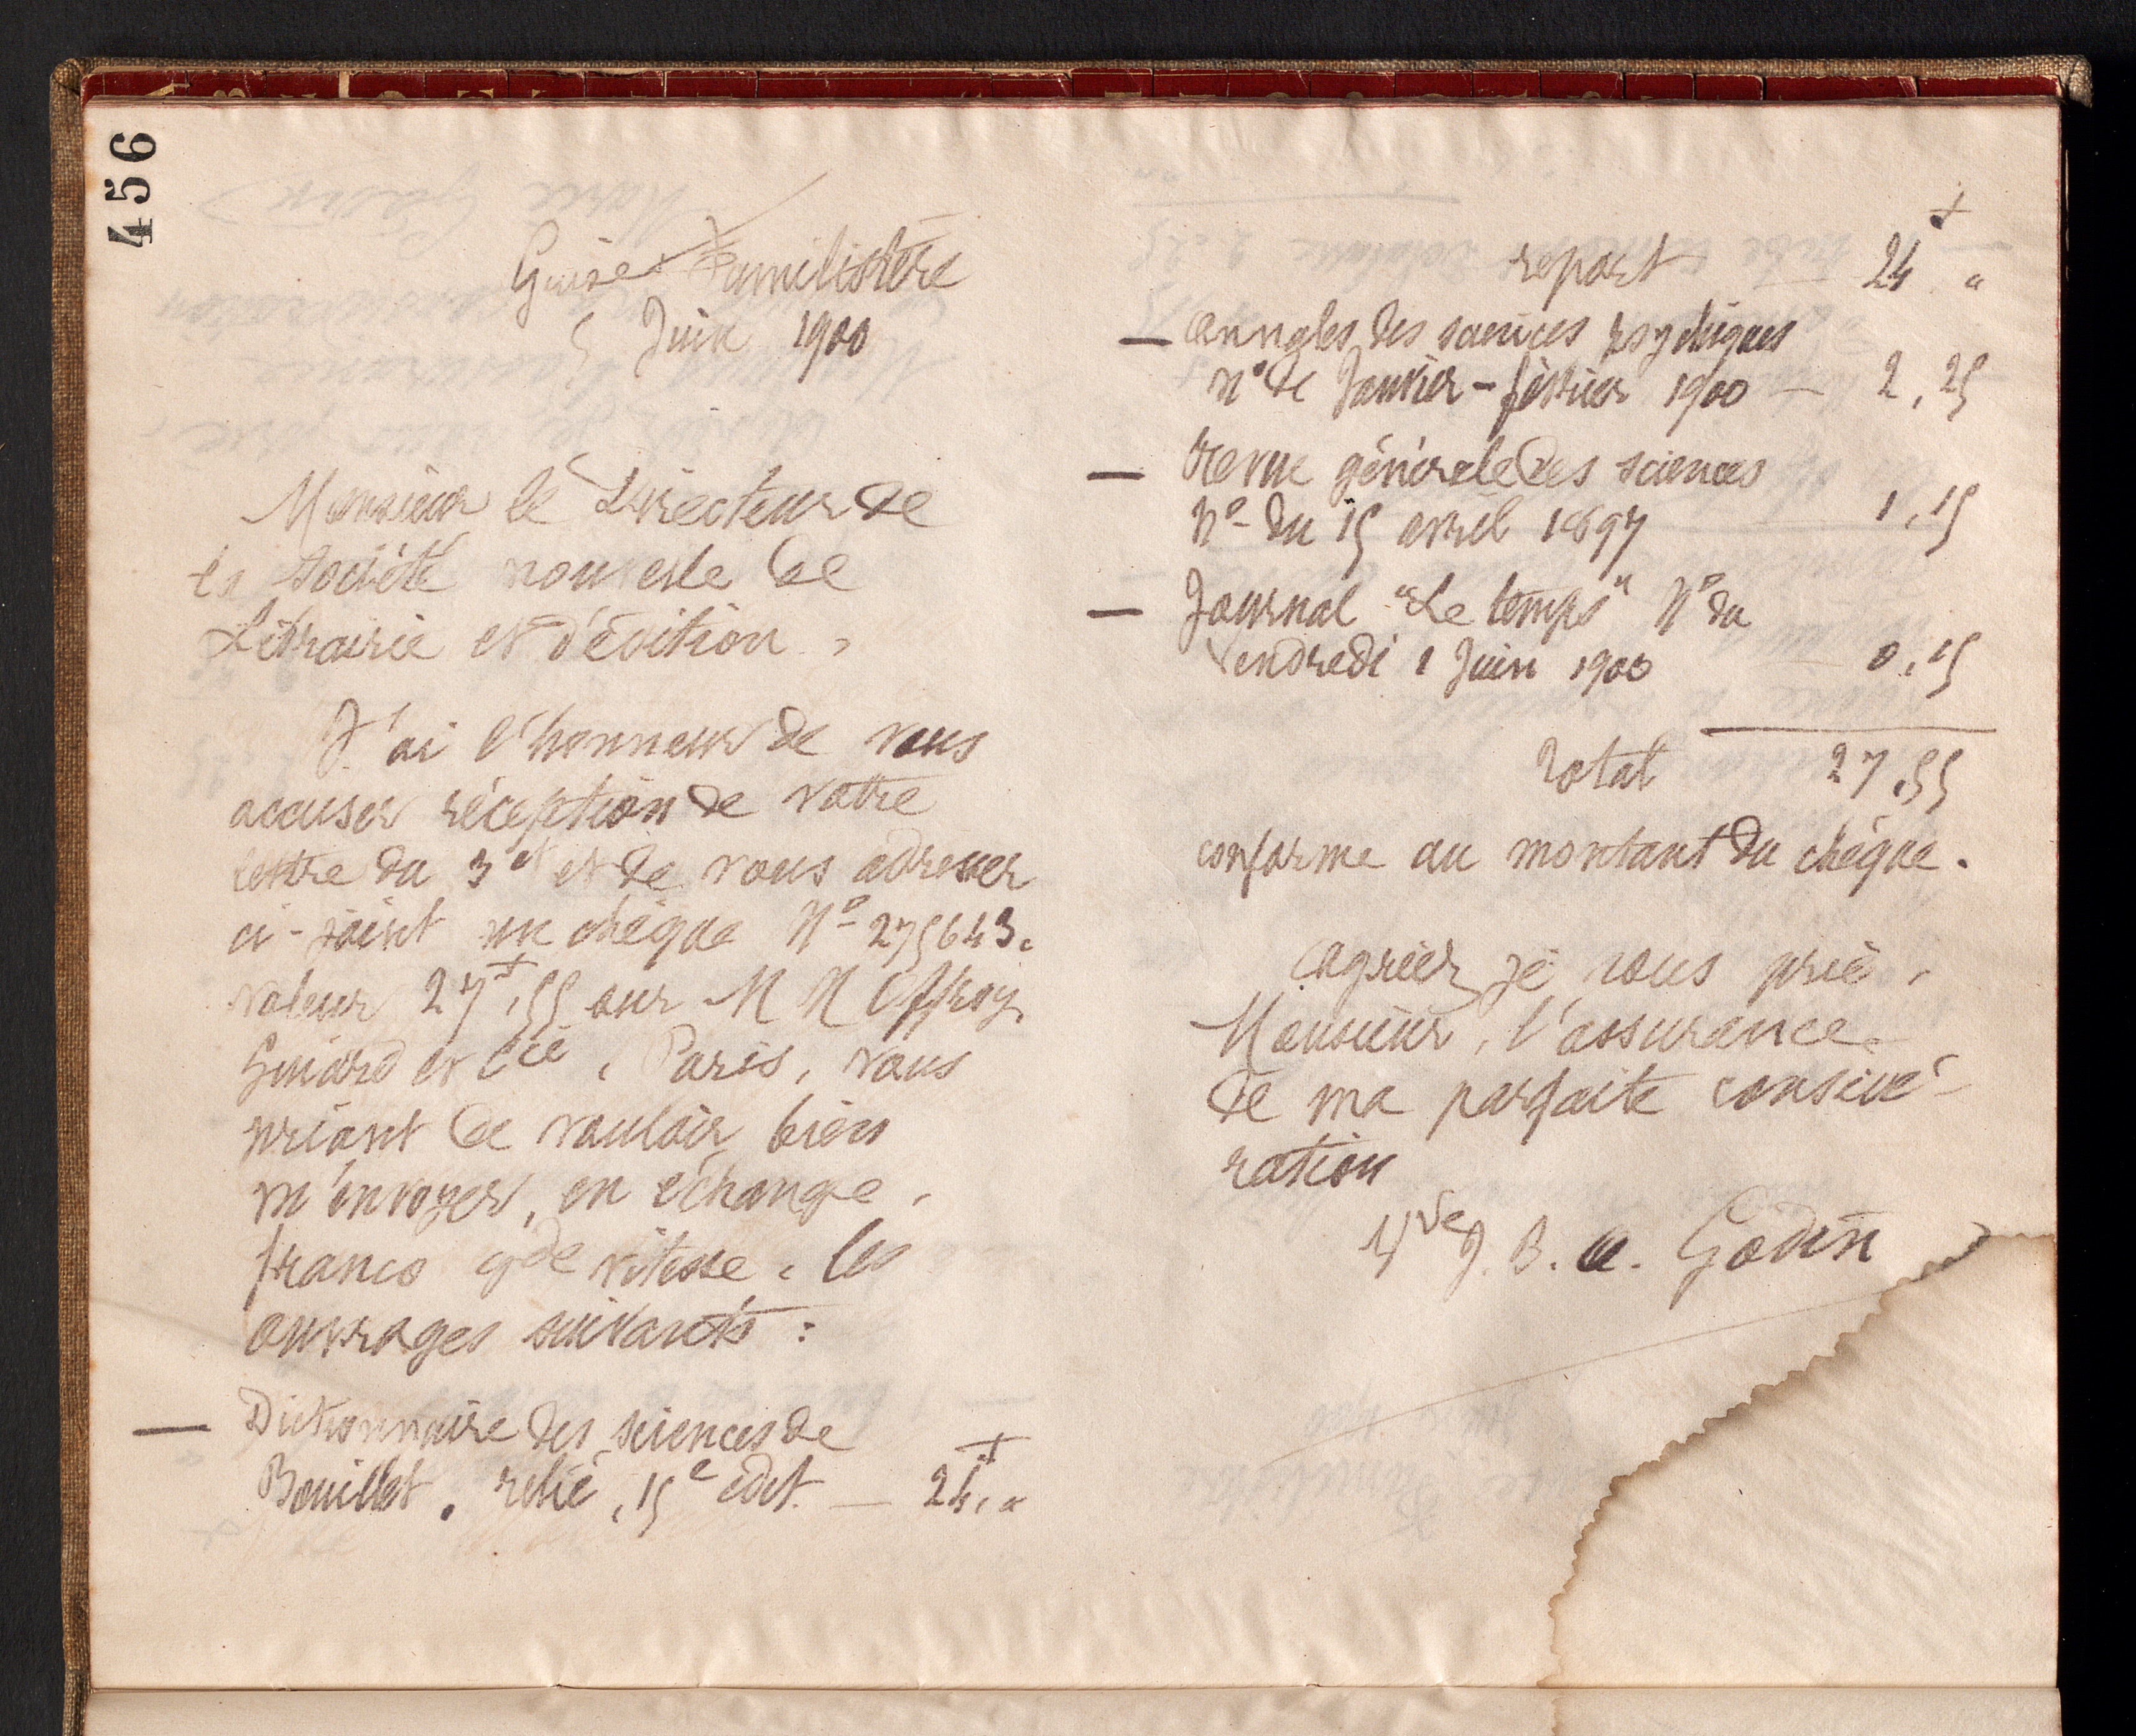 456
Guise Familistère
5 Juin 1900
Monsieur le Directeur de
la Société nouvelle de
Librairie et d'édition,
J'ai l'honneur de vous
accuser réception de votre
lettre du 3 et et de vous adresser
ci-joint un chèque Nº 275643,
valeur 27f,55 sur M M Offroy,
Guiard et Cie, Paris, vous
priant de vouloir bien
m'envoyer, en échange,
franco gde vitesse, les
ouvrages suivants :
— Dictionnaire des sciences de
Bouillet, relié, 15e édit. — 24f, "
report 24f "
— Annales des sciences psychiques
nº de Janvier-février 1900 — 2,25
— Revue générale des sciences
Nº du 15 avril 1897 1,15
— Journal "Le temps" Nº du
Vendredi 1 Juin 1900 0,15
Total 27,55
conforme au montant du chèque.
Agréez, je vous prie,
Monsieur, l'assurance
de ma parfaite considé-
ration
Vve J. B. A. Godin